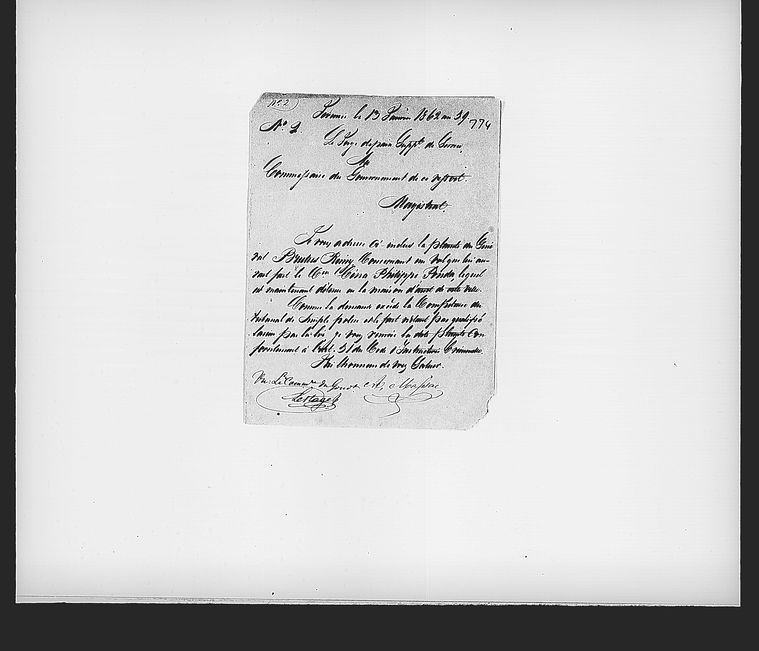 No 2
le 13 Janvier 1862 an 59
774
No 2
Le Juge de paix Suppt de
Au
Commissaire du Gouvernement de ce ressort.
Magistrat,
Je vous adresse ci-inclus la plainte du Géné
ral Brutus concernant un vol que lui au
rait fait le Philippe lequel
est maintenant détenu en la maison d'arrêt de cette ville.
Comme la demande excède la Compétence du
tribunal de simple police et le fait n'étant pas qualifié
par la loi, je vous renvoie la dite plainte Con
formément à l'art. du Code d'Instruction Criminelle
J'ai l'honneur de vous Saluer.
Vu: Le Commre du Gouvt
Lestage